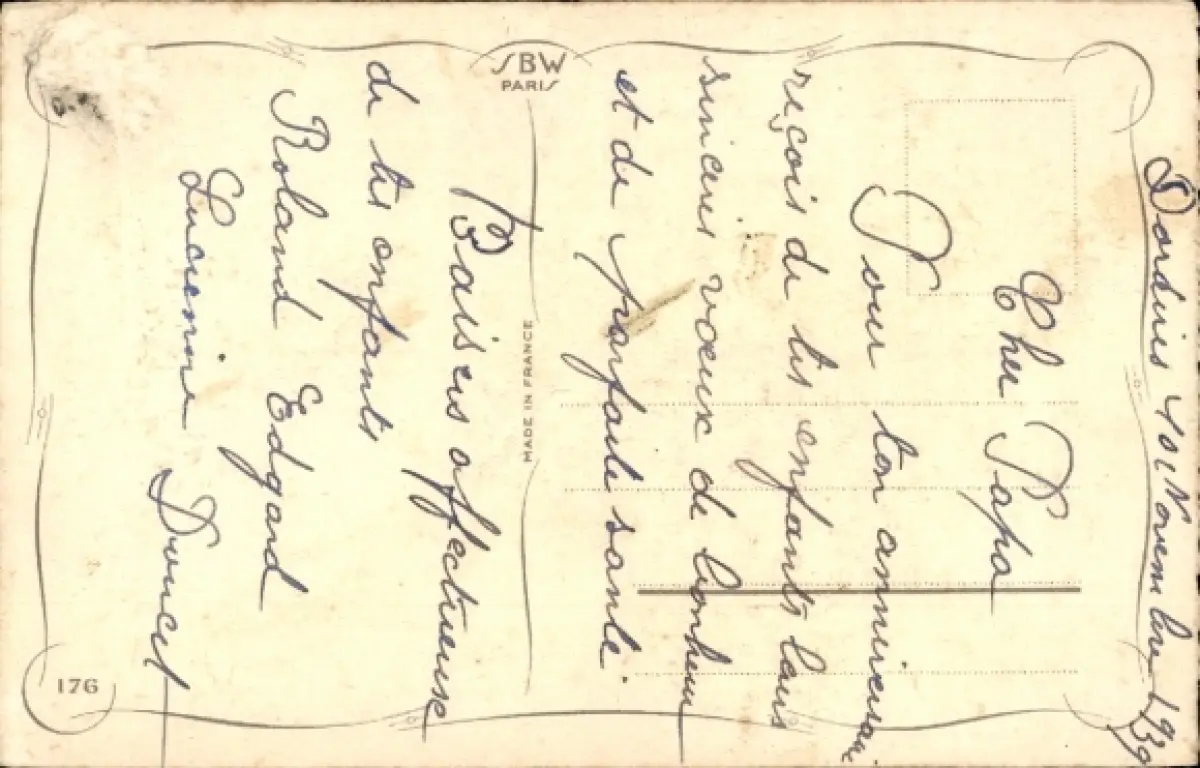 10 Novembre 1939
Cher Papa
Pour ton anniversaire
reçois de tes enfants leurs
sincères voeux de bonheur
et de parfaite santé.
Baisers affectueuse
de tes enfants
Roland Edgard
Lucienne Doucet
SBW
PARIS
MADE IN FRANCE
176